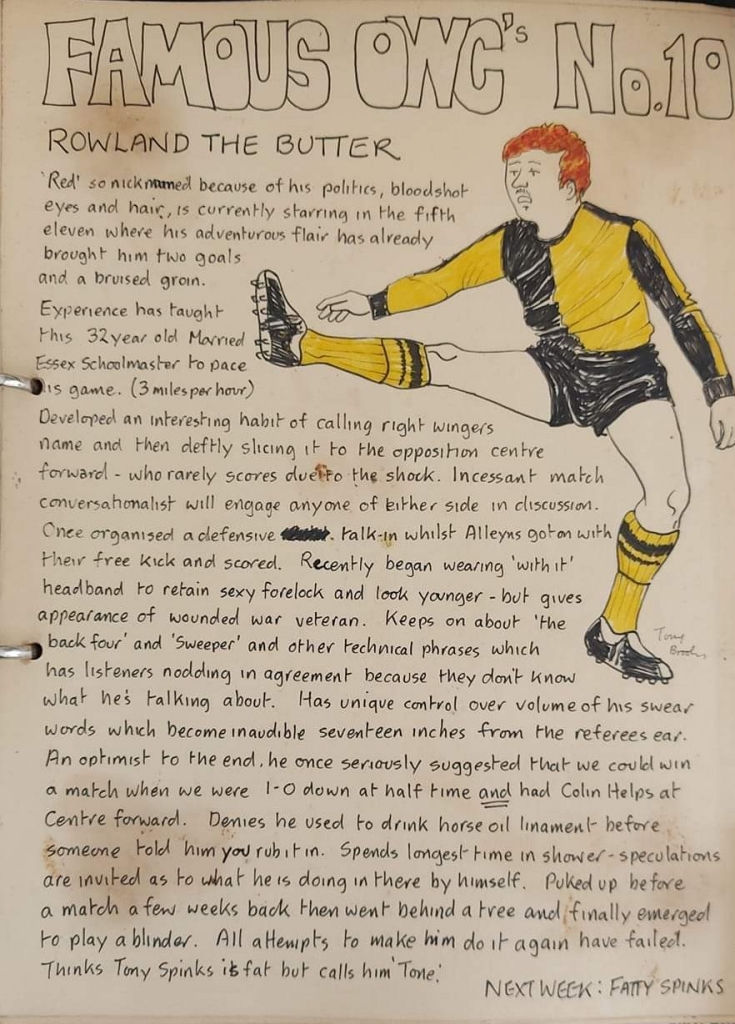 FAMOUS OWC's No.10
ROWLAND THE BUTTER
'Red' so nicknamed because of his politics, bloodshot
eyes and hair, is currently starring in the fifth
eleven where his adventurous flair has already
brought him two goals
and a bruised groin.
Experience has taught
this 32 year old Married
Essex Schoolmaster to pace
his game. (3 miles per hour)
Developed an interesting habit of calling right wingers
name and then deftly slicing it to the opposition centre
forward - who rarely scores due to the shock. Incessant match
conversationalist will engage anyone of either side in discussion.
Once organised a defensive talk-in whilst Alleyns got on with
their free kick and scored. Recently began wearing 'with it'
headband to retain sexy forelock and look younger - but gives
appearance of wounded war veteran. Keeps on about 'the
back four' and 'Sweeper' and other technical phrases which
has listeners nodding in agreement because they don't know
what he's talking about. Has unique control over volume of his swear
words which become inaudible seventeen inches from the referees ear.
An optimist to the end, he once seriously suggested that we could win
a match when we were 1-0 down at half time and had Colin Helps at
Centre forward. Denies he used to drink horse oil linament before
someone told him you rub it in. Spends longest time in shower - speculations
are invited as to what he is doing in there by himself. Puked up before
a match a few weeks back then went behind a tree and finally emerged
to play a blinder. All attempts to make him do it again have failed.
Thinks Tony Spinks is fat but calls him 'Tone'.
NEXT WEEK: FATTY SPINKS
Tony